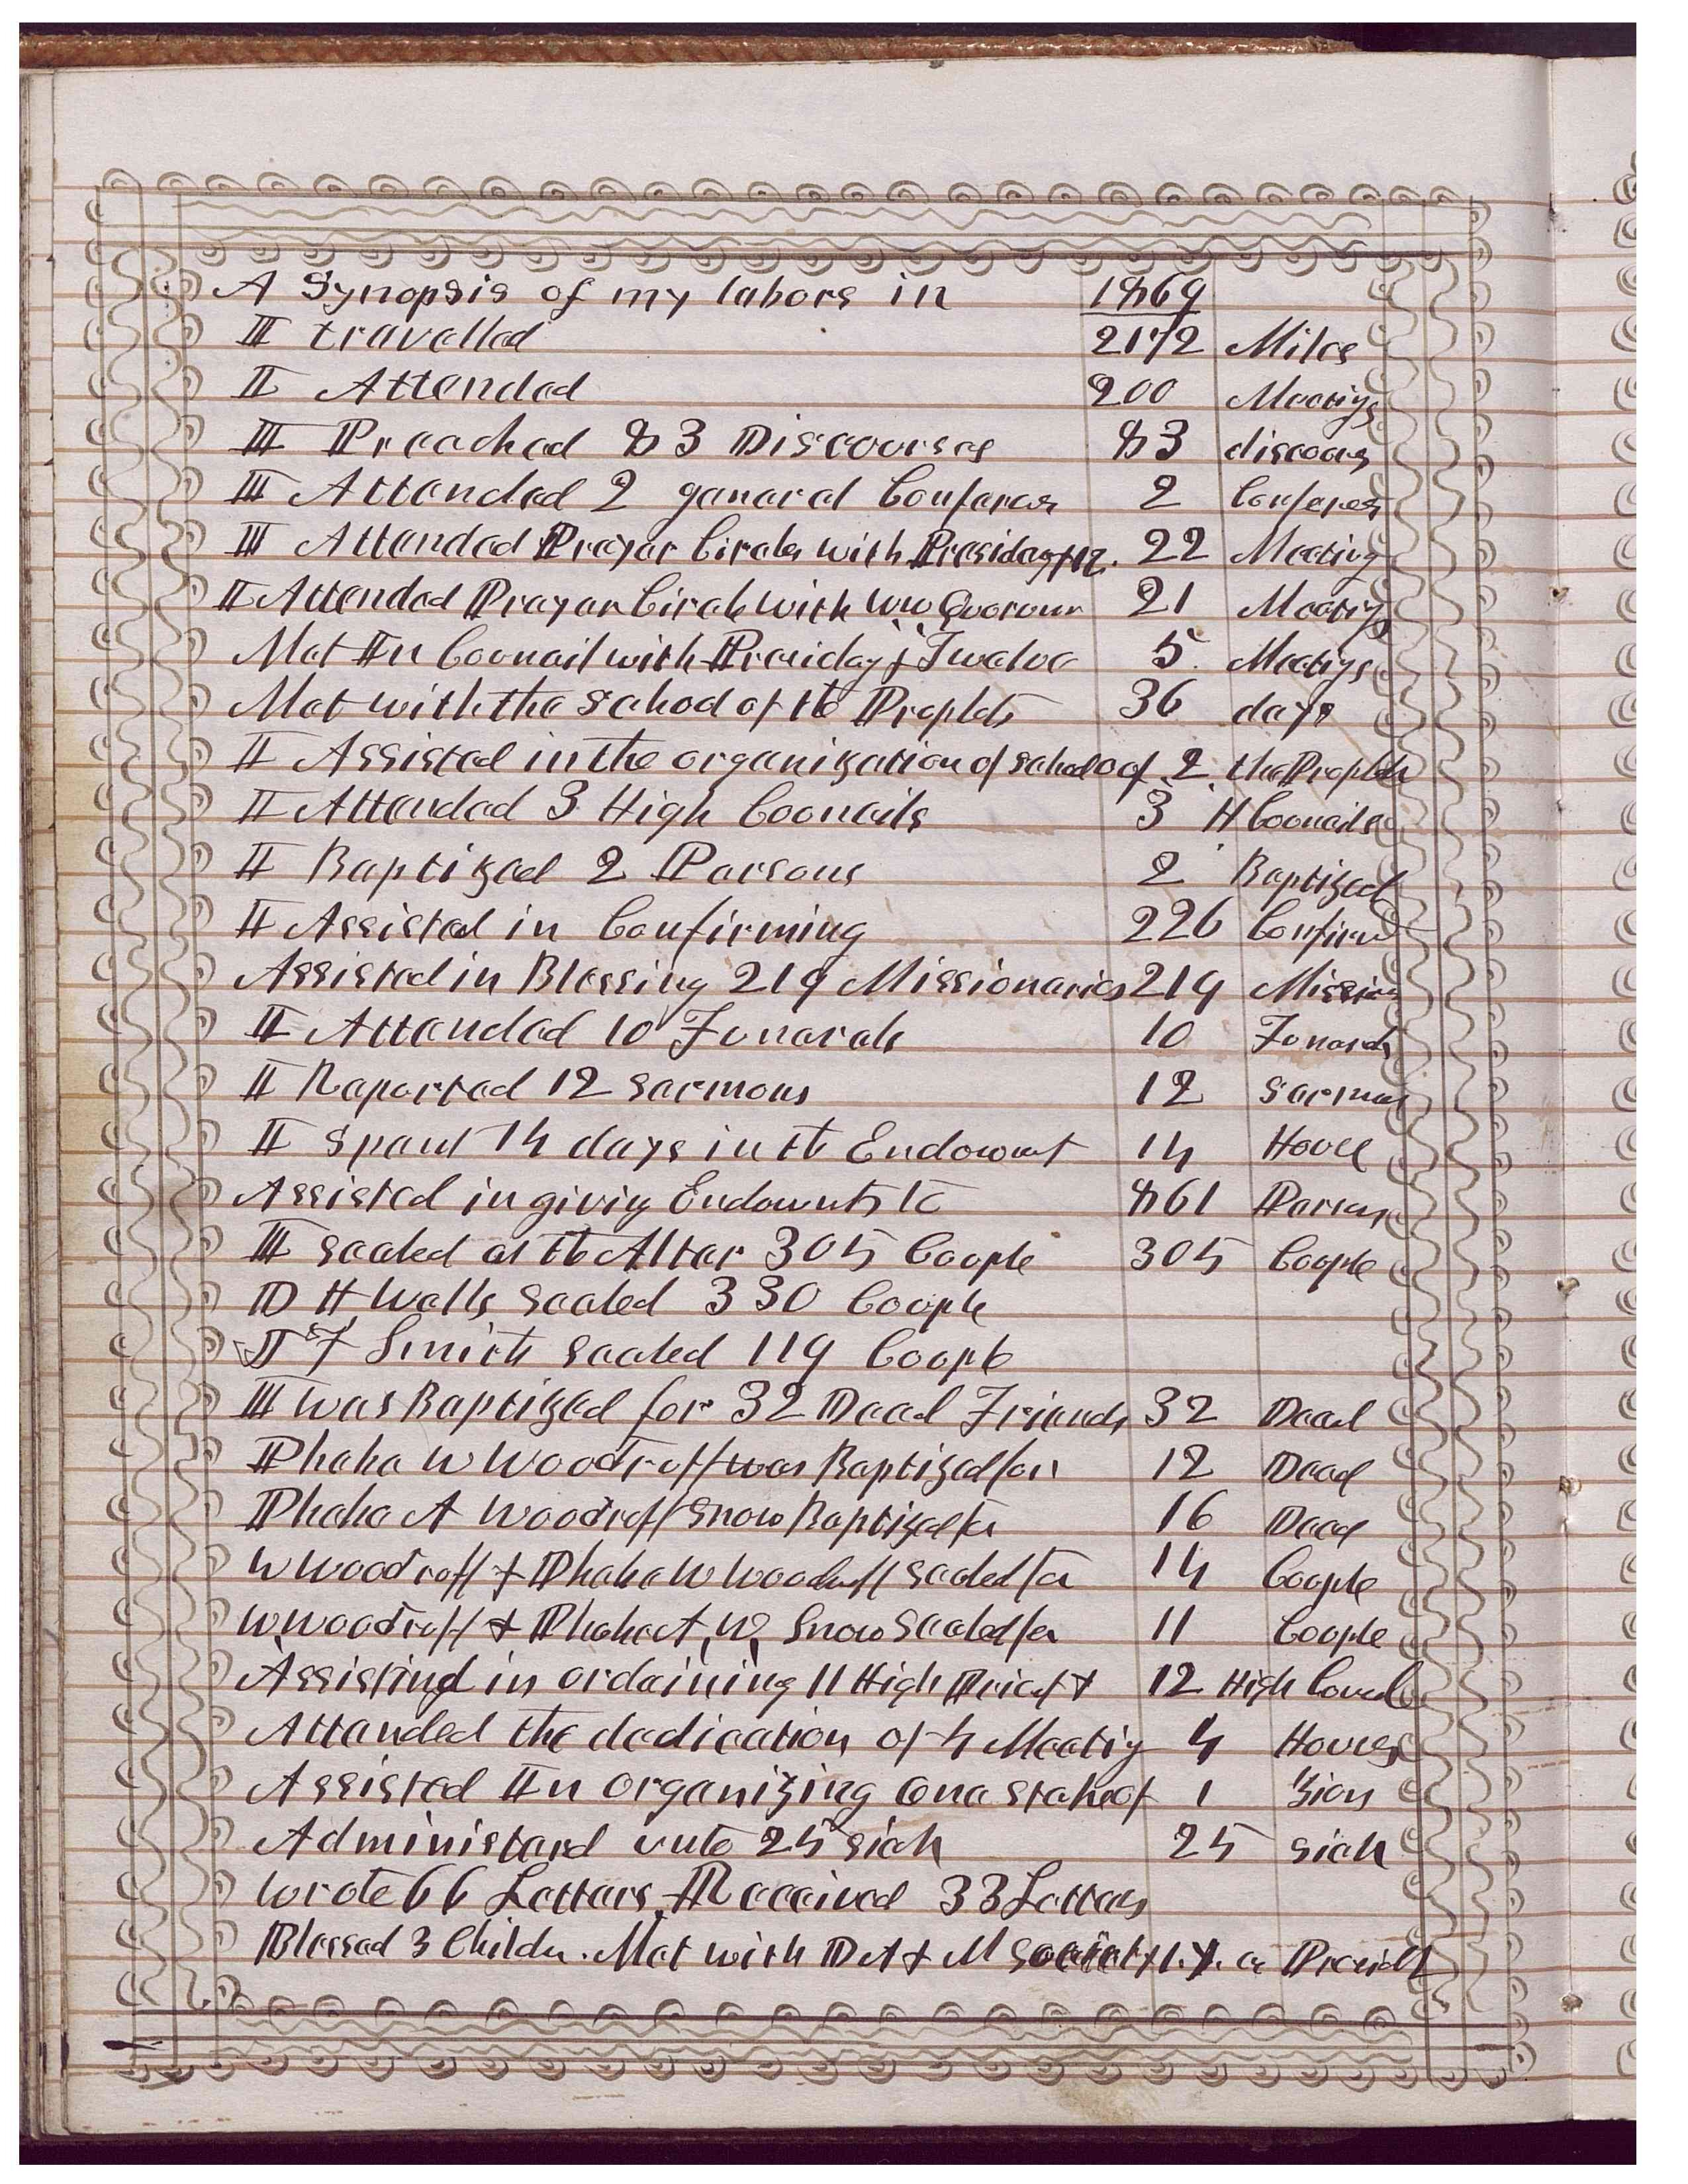 A Synopsis of my labors in 1869
I travelled 2172 Miles
I Attended 200 Meetigs
I Preached 83 Discourses 83 discous
I Attended 2 general Conferces 2 Conferes
I Attended Prayer Circles with Presidency & 12. 22 Meeting
I Attended Prayer Circle with WW Quorum 21 Meetigs
Met In Council with Presidcy & Twelve 5 Meetigs
Met with the School of the Prophets 36 days
I Assisted in the organization of schools of 2 the Prophets
I Attended 3 High Councils 3 H Councils
I Baptized 2 Persons 2 Baptized
I Assisted in Confirming 226 Confirm
Assisted in Blessing 219 Missionaries 219 Mission
I Attended 10 Funerals 10 Funerals
I Reported 12 Sermons 12 Sermons
I Spent 14 days in the Endowmt 14 House
Assisted in givig Endowmts to 861 Persons
I sealed at the Altar 305 Couple 305 Couple
D H Wells Sealed 330 Couple
J F Smith Sealed 119 Couple
I was Baptized for 32 Dead Friends 32 Dead
Phebe W Woodruff was Baptized for 12 Dead
Phebe A Woodruff Snow Baptized for 16 Dead
W Woodruff & Phebe W Woodruff Sealed for 14 Couple
W Woodruff & Phebe A W Snow Sealed for 11 Couple
Assisting in ordaining 11 High Priest & 12 High Council
Attended the dedication of 4 Meetig 4 Houses
Assisted In organizing one stake of 1 Zion
Administerd unto 25 Sick 25 Sick
wrote 66 Letters, Received 33 Letters
Blessed 3 Childn. Met with D A & M Society as Presidt